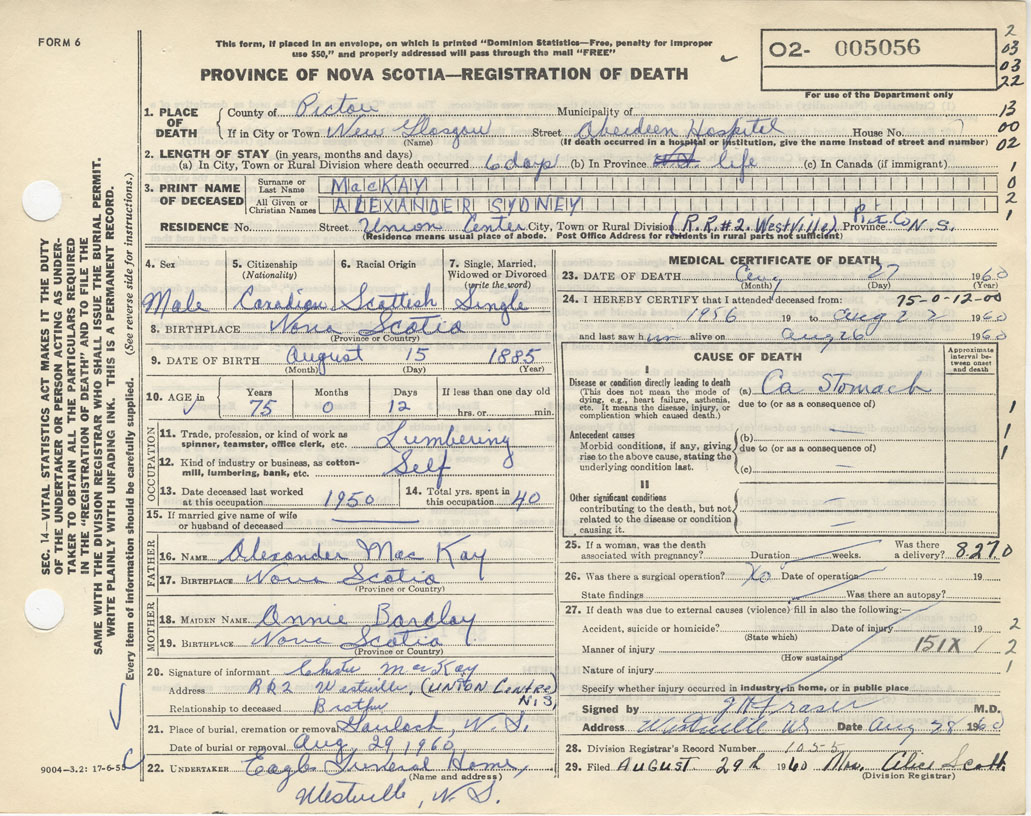 FORM 6
This form, if placed in an envelope, on which is printed "Dominion Statistics—Free, penalty for improper
use $50," and properly addressed will pass through the mail "FREE"
PROVINCE OF NOVA SCOTIA—REGISTRATION OF DEATH
02- 005056
For use of the Department only
2
03
03
22
13
00
02
1. PLACE OF DEATH County of Pictou Municipality of
If in City or Town New Glasgow Street Aberdeen Hospital House No.
(Name) (If death occurred in a hospital or institution, give the name instead of street and number)
2. LENGTH OF STAY (in years, months and days)
(a) In City, Town or Rural Division where death occurred 6 days (b) In Province life (c) In Canada (if immigrant)
3. PRINT NAME OF DECEASED
Surname or Last Name MacKAY
All Given or Christian Names ALEXANDER SYDNEY
1
0
2
1
RESIDENCE No. Street Union Center City, Town or Rural Division (R.R.#2. Westville) Province Pict. Co N.S.
(Residence means usual place of abode. Post Office Address for residents in rural parts not sufficient)
4. Sex 5. Citizenship (Nationality) 6. Racial Origin 7. Single, Married, Widowed or Divorced (write the word)
Male Canadian Scottish Single
8. BIRTHPLACE Nova Scotia
(Province or Country)
9. DATE OF BIRTH August 15 1885
(Month) (Day) (Year)
10. AGE Years Months Days If less than one day old
75 0 12 hrs. or min.
OCCUPATION
11. Trade, profession, or kind of work as spinner, teamster, office clerk, etc. Lumbering
12. Kind of industry or business, as cotton-mill, lumbering, bank, etc. Self
13. Date deceased last worked at this occupation 1950 14. Total yrs. spent in this occupation 40
15. If married give name of wife or husband of deceased
FATHER
16. NAME Alexander MacKay
17. BIRTHPLACE Nova Scotia
(Province or Country)
MOTHER
18. MAIDEN NAME Annie Barclay
19. BIRTHPLACE Nova Scotia
(Province or Country)
20. Signature of informant MacKay
Address RR2 Westville, (UNION CENTRE N.S)
Relationship to deceased Brother
21. Place of burial, cremation or removal N.S.
Date of burial or removal Aug. 29, 1960
22. UNDERTAKER Eagle Funeral Home,
(Name and address)
Westville, N.S.
MEDICAL CERTIFICATE OF DEATH
23. DATE OF DEATH Aug 27 1960
(Month) (Day) (Year)
24. I HEREBY CERTIFY that I attended deceased from: 75-0-12-00
1956 19 to Aug 22 1960
and last saw him alive on Aug 26 1960
CAUSE OF DEATH
Approximate interval between onset and death
I
Disease or condition directly leading to death
(This does not mean the mode of dying, e.g., heart failure, asthenia, etc. It means the disease, injury, or complication which caused death.)
(a) Ca Stomach
due to (or as a consequence of)
Antecedent causes
Morbid conditions, if any, giving rise to the above cause, stating the underlying condition last.
(b)
due to (or as a consequence of)
(c)
II
Other significant conditions
contributing to the death, but not related to the disease or condition causing it.
1
1
1
25. If a woman, was the death associated with pregnancy? Duration weeks. Was there a delivery? 8270
26. Was there a surgical operation? No Date of operation 19
State findings Was there an autopsy?
27. If death was due to external causes (violence) fill in also the following:—
Accident, suicide or homicide? Date of injury 19 2
(State which)
Manner of injury 151X 1 2
(How sustained)
Nature of injury 1
Specify whether injury occurred in industry, in home, or in public place
Signed by Fraser M.D.
Address Westville NS Date Aug 28 1960
28. Division Registrar's Record Number 1055
29. Filed AUGUST 29th 1960 Mrs. Alice Scott
(Division Registrar)
SEC. 14—VITAL STATISTICS ACT MAKES IT THE DUTY
OF THE UNDERTAKER OR PERSON ACTING AS UNDER-
TAKER TO OBTAIN ALL THE PARTICULARS REQUIRED
IN THE "REGISTRATION OF DEATH" AND TO FILE THE
SAME WITH THE DIVISION REGISTRAR WHO SHALL ISSUE THE BURIAL PERMIT.
WRITE PLAINLY WITH UNFADING INK. THIS IS A PERMANENT RECORD.
Every item of information should be carefully supplied. (See reverse side for instructions.)
9004-3.2: 17-6-55